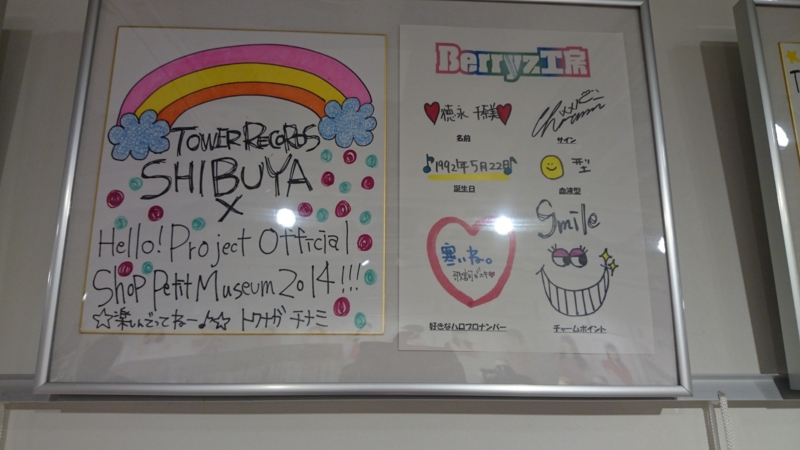 TOWER RECORDS
SHIBUYA
X
Hello! Project Official
Shop Petit Museum 2014!!!
☆楽しんでってねー♪☆ トクナガ チナミ
Berryz工房
徳永 千奈美
名前
サイン
1992年5月22日
誕生日
型
血液型
寒いね。
好きなハロプロナンバー
Smile
チャームポイント